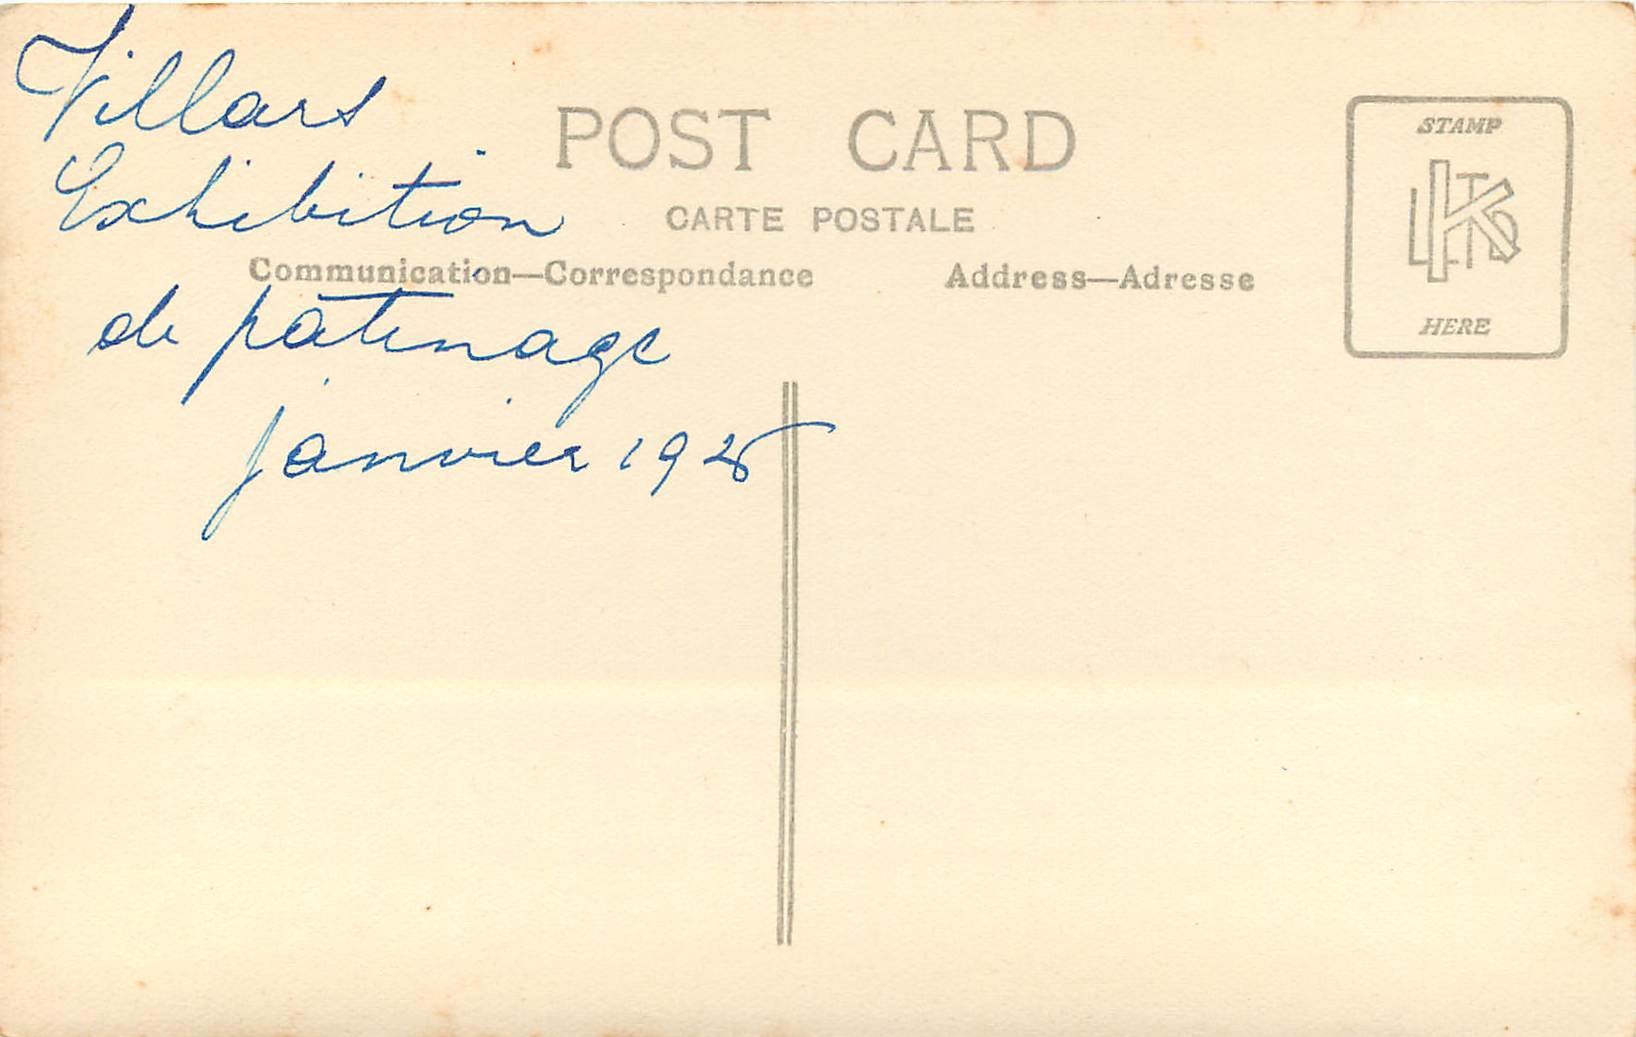 Villars
Exhibition
de patinage
janvier 1926
POST CARD
CARTE POSTALE
Communication—Correspondance
Address—Adresse
STAMP
HERE